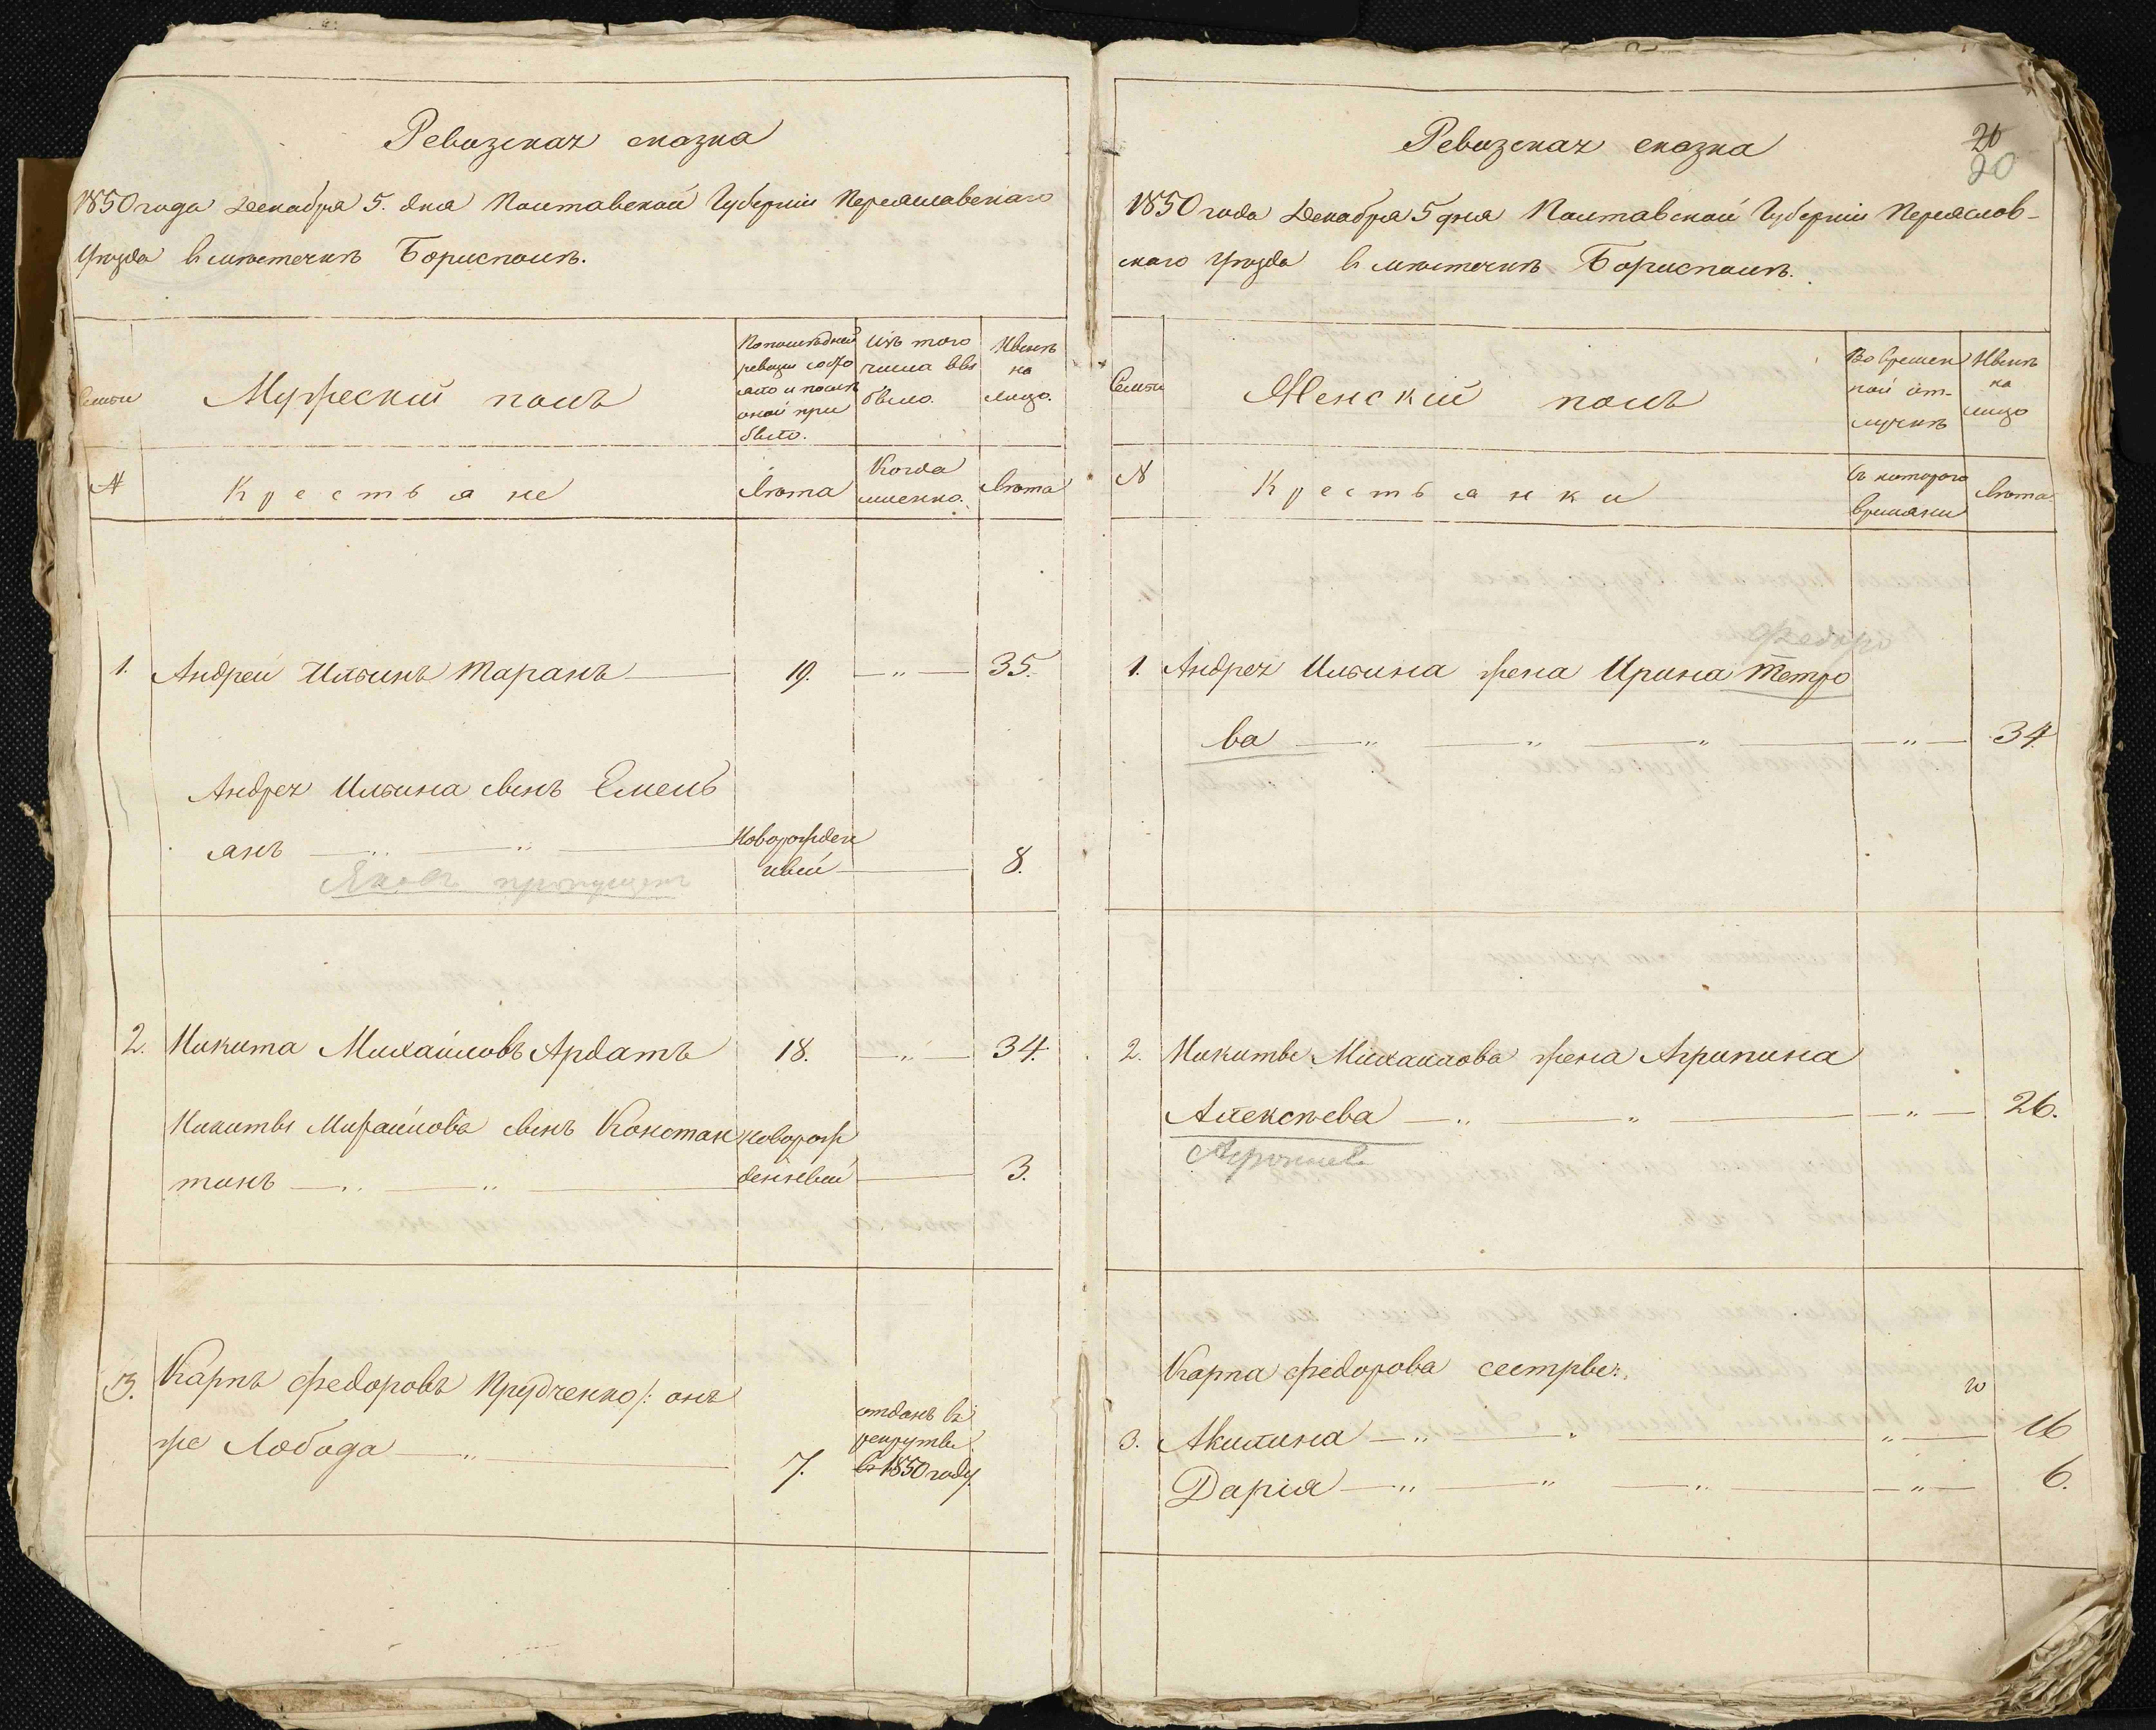 Ревизская сказка
1850 года Декабря 5. дня Полтавской Губернии Переяславского
уезда в местечкѣ Борисполѣ.
Семьи
Мужеский полъ
По последней
ревизии состо
яло и после
оной при
было.
Изъ того
числа вы
было.
Нынѣ
на
лицо.
N
Крестьяне
Лѣта
Когда
именно.
Лѣта
1. Андрей Ильинъ Таранъ 19. — „ — 35.
Андрея Ильина сынъ Емель
янъ — „ — „ — Новорожден
ный — 8.
Яковъ пропущен
2. Никита Михайловъ Ардатъ 18. — „ — 34.
Никиты Михайлова сынъ Констан новорож
тинъ — „ — „ — денный — 3.
3. Карпъ Федоровъ Прудченко /: онъ
же Лобода — „ — 7.
отданъ въ
рекруты
в 1850 году.
Ревизская сказка
20
20
1850 года Декабря 5 дня Полтавской Губернии Переяслов-
ского уезда в местечкѣ Борисполѣ.
Семьи
Женский полъ
Во времен
ной от-
лучкѣ
Нынѣ
на
лицо
N
Крестьянки
Съ которого
времяни
Лѣта
Федоро
1. Андрея Ильина жена Ирина Петро
ва — „ — „ — „ — „ — 34.
2. Никиты Михайлова жена Агрипина
Алексѣева — „ — „ — „ — 26.
Карпа Федорова сестры:
3. Акилина — „ — „ — „ — 16
Дария — „ — „ — „ — „ — 6.